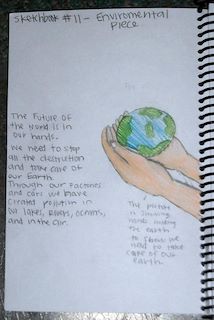 Sketchbook #11 - Enviromental
Piece
The Future of
the world is in
our hands.
We need to stop
all the destruction
and take care of
our Earth.
Through our factories
and cars we have
created pollution in
our lakes, Rivers, oceans,
and in the air.
The picture
is showing
hands holding
the earth
to show we
need to take
care of our
earth.